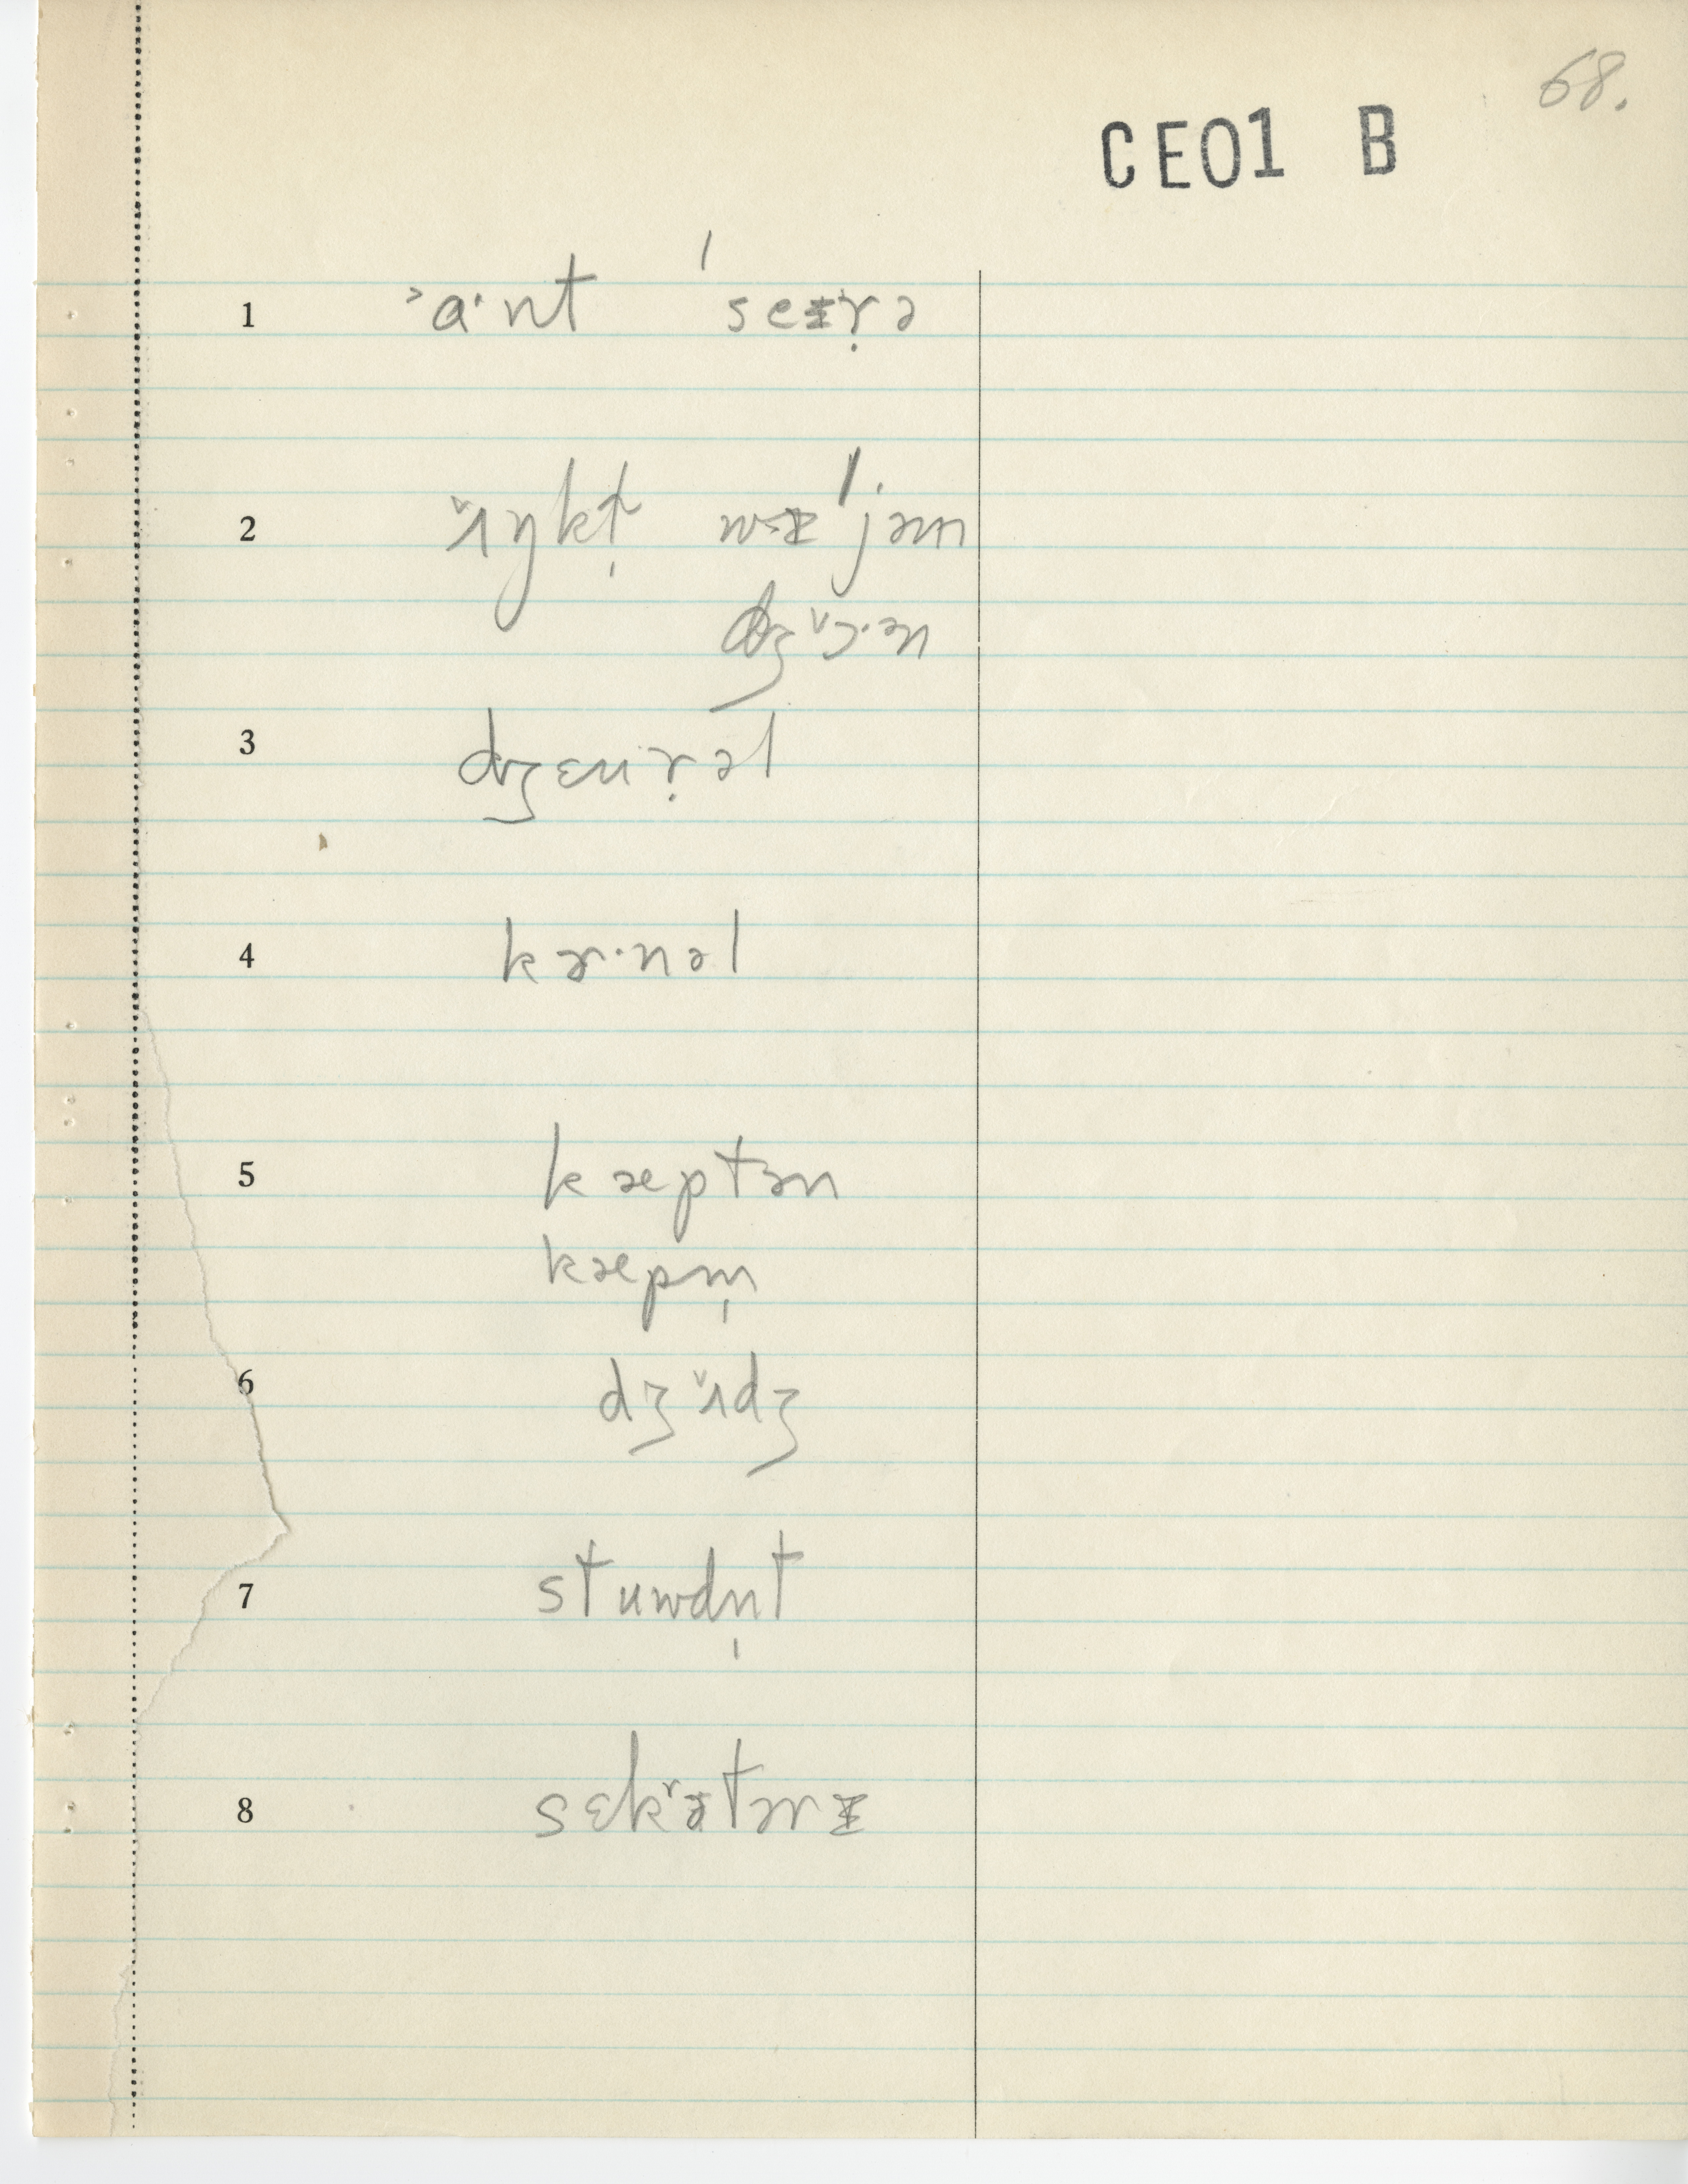 68.
CE01 B
1 ˃a·nt ˈseɪṛə
2 ʌ̌ŋkḷ wɪˈjəm
dʒɔ̌·ən
3 dʒɛnṛəl
4 kɚ·nəl
5 kæptən
kæpm̩
6 dʒʌ̌dʒ
7 stuwdn̩t
8 sɛkʳətərɪ